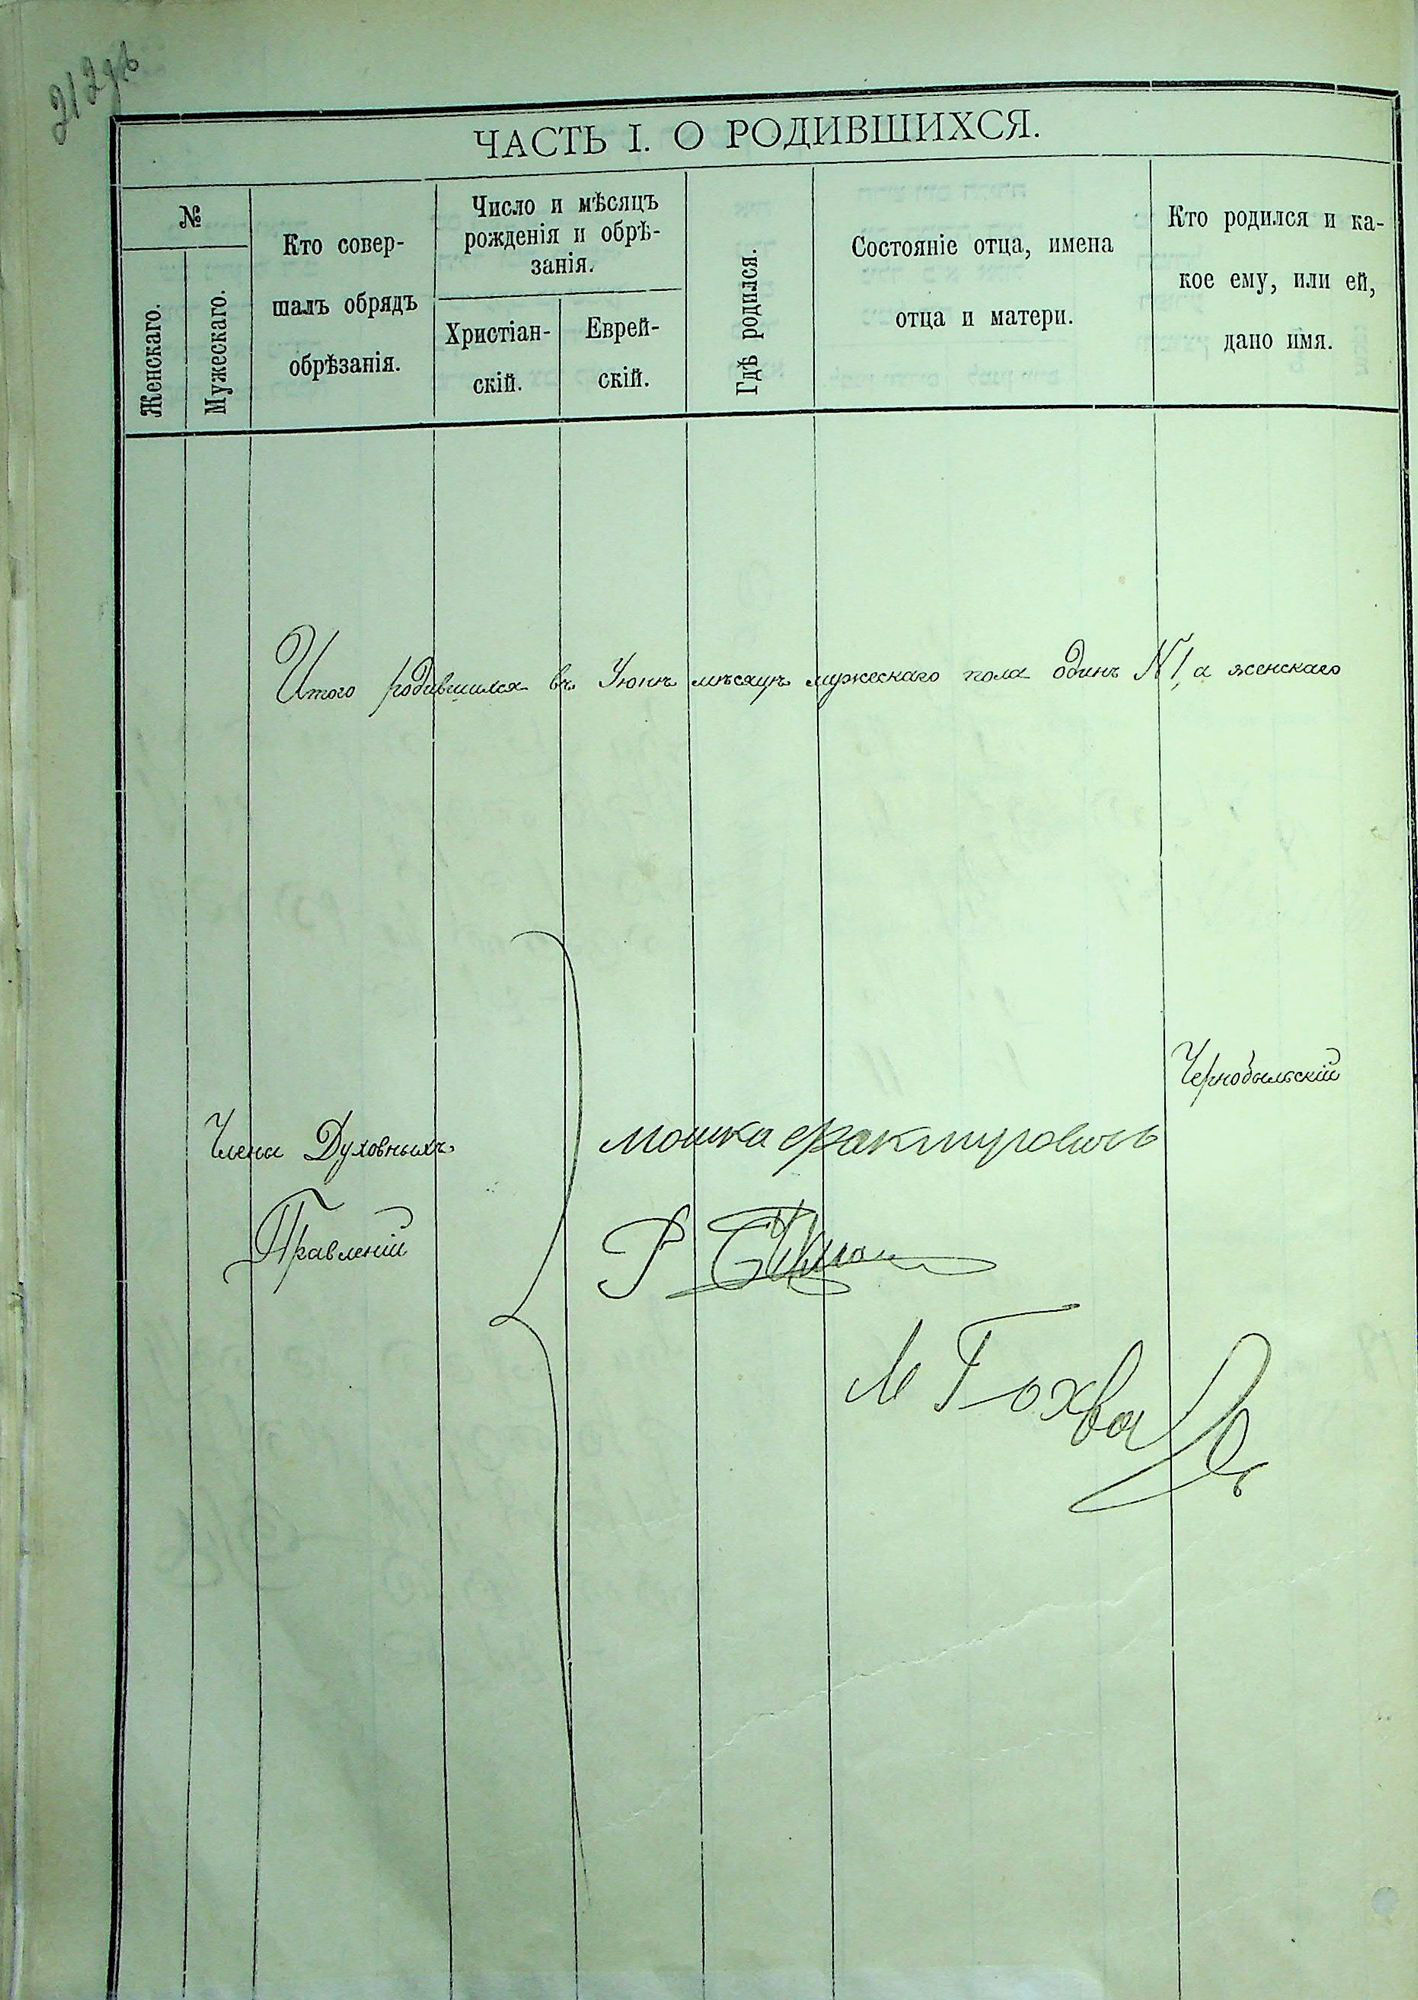 212
ЧАСТЬ I. О РОДИВШИХСЯ.
№
Женскаго.
Мужескаго.
Кто совер-
шалъ обрядъ
обрѣзанія.
Число и мѣсяцъ
рожденія и обрѣ-
занія.
Христіан-
скій.
Еврей-
скій.
Гдѣ родился.
Состояніе отца, имена
отца и матери.
Кто родился и ка-
кое ему, или ей,
дано имя.
Итого родившихся въ Июнѣ мѣсяцѣ мужескаго пола одинъ №1, а женскаго
Чернобыльскій
Члены Духовныхъ
Правленій
Мошка
Р
М Гохва